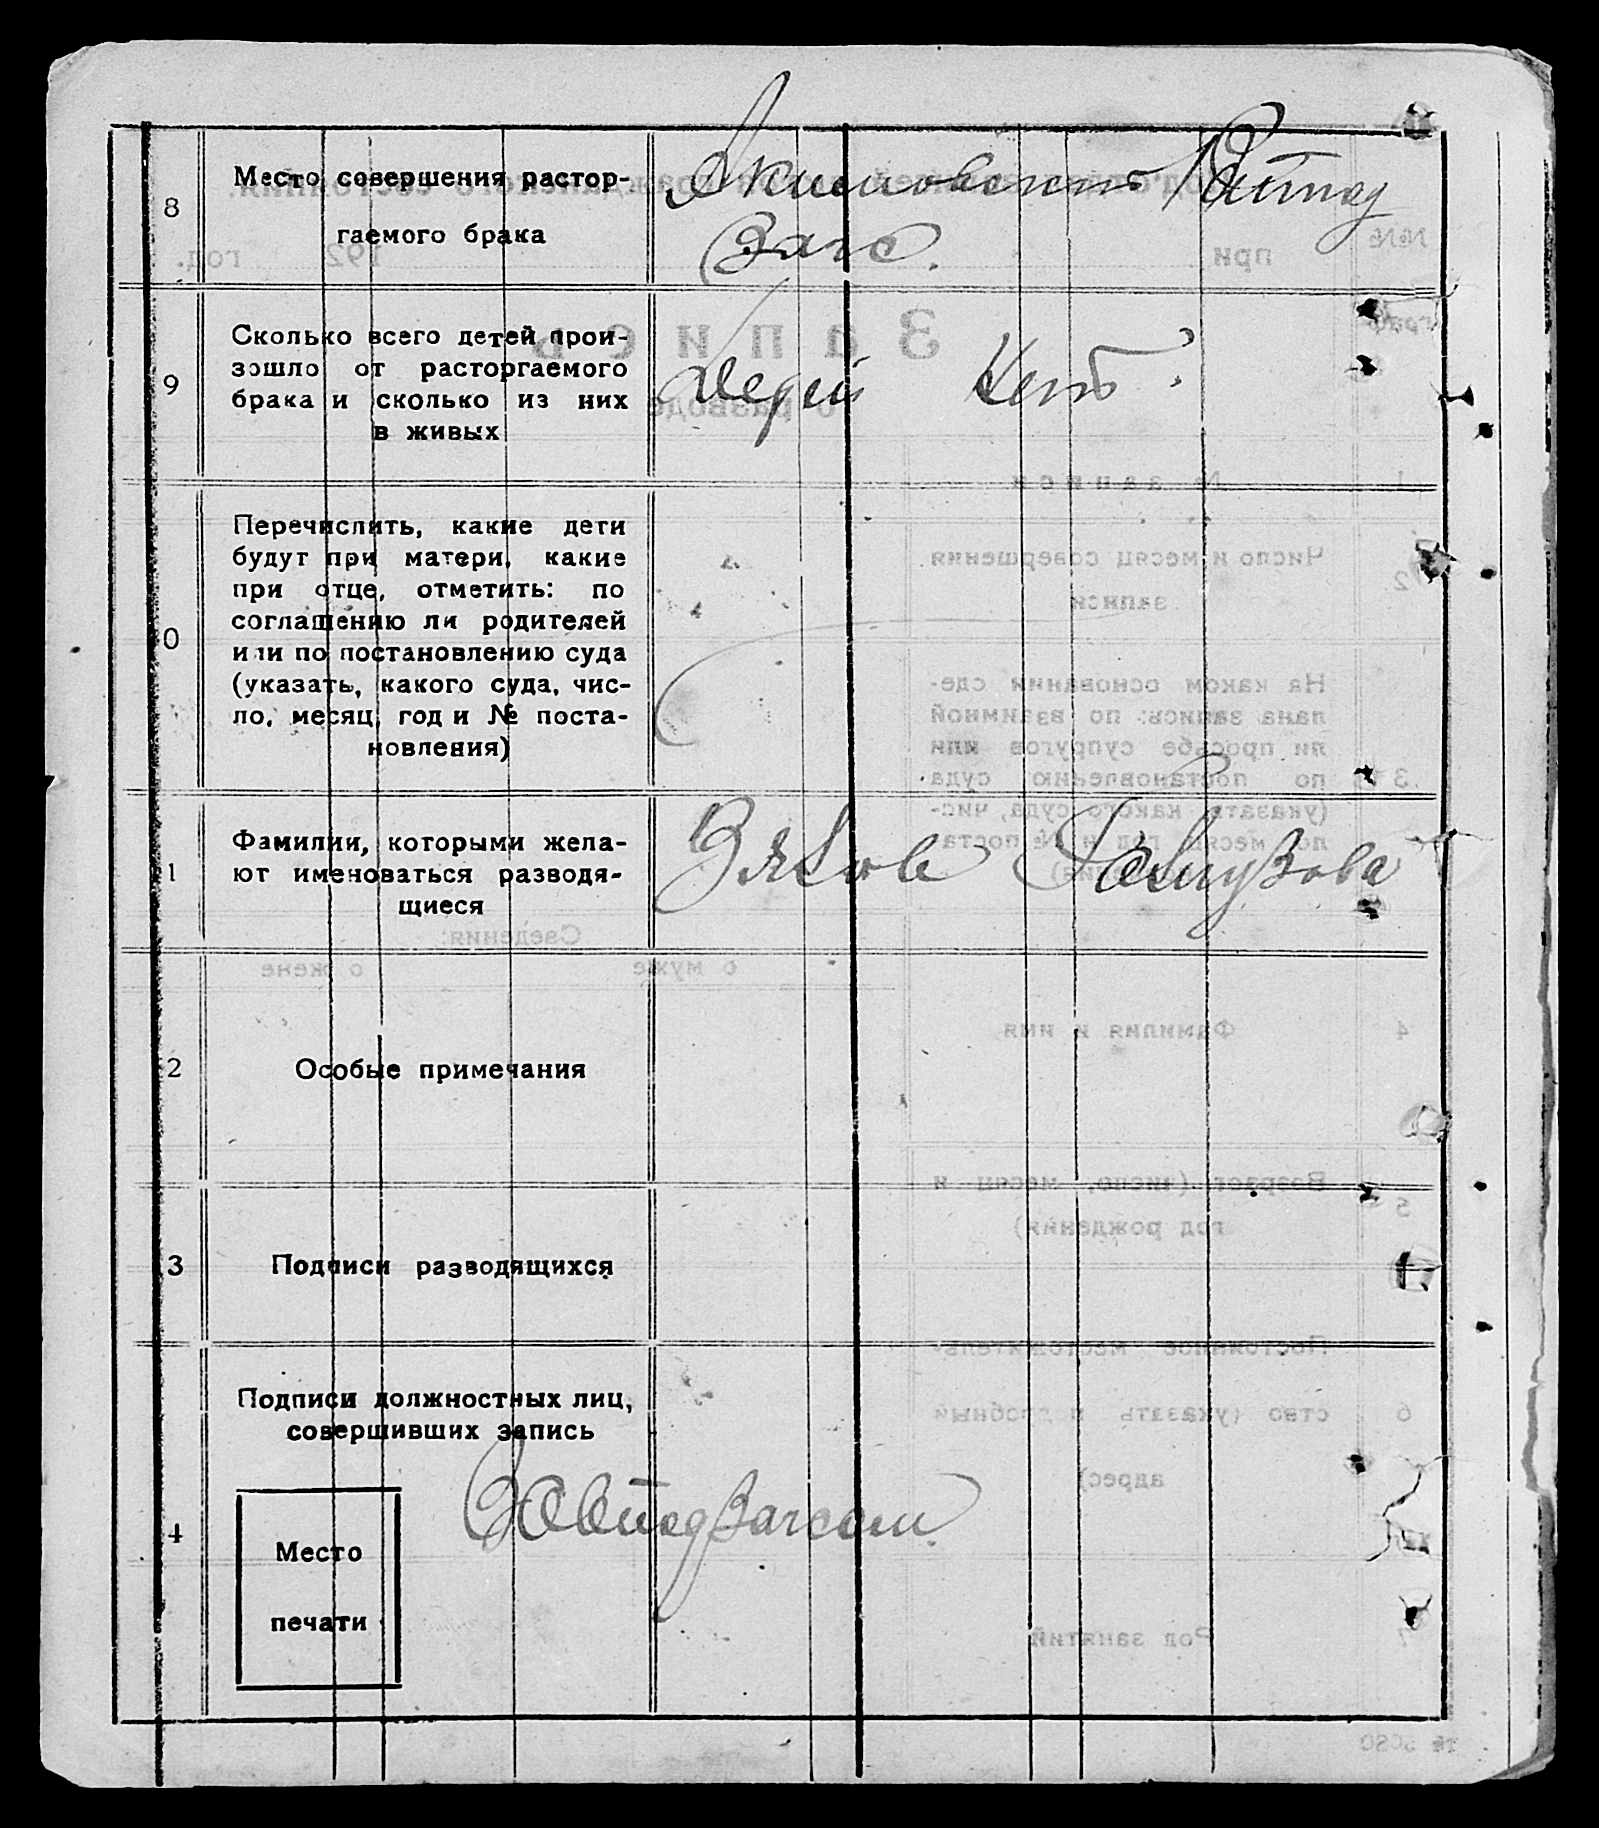 8
Место совершения растор-
гаемого брака
Акимовский Райпод
Загс.
9
Сколько всего детей прои-
зошло от расторгаемого
брака и сколько из них
в живых
Детей Нет.
0
Перечислить, какие дети
будут при матери, какие
при отце, отметить: по
соглашению ли родителей
или по постановлению суда
(указать, какого суда, чис-
ло, месяц, год и № поста-
новления)
1
Фамилии, которыми жела-
ют именоваться разводя-
щиеся
2
Особые примечания
3
Подписи разводящихся
4
Подписи должностных лиц,
совершивших запись
Завподзагсом
Место
печати